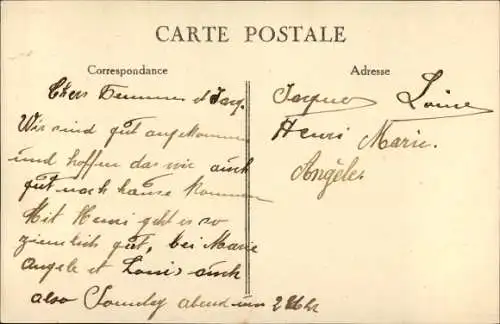 CARTE POSTALE
Correspondance
Adresse
Chers et Jacq.
Wir sind gut angekommen
und hoffen das wir auch
gut nach hause kommen
Mit Henri geht es so
ziemlich gut, bei Marie
Angele et Louis auch
also abend um 2 Uhr
Jaques Loine
Henri Marie.
Angèles